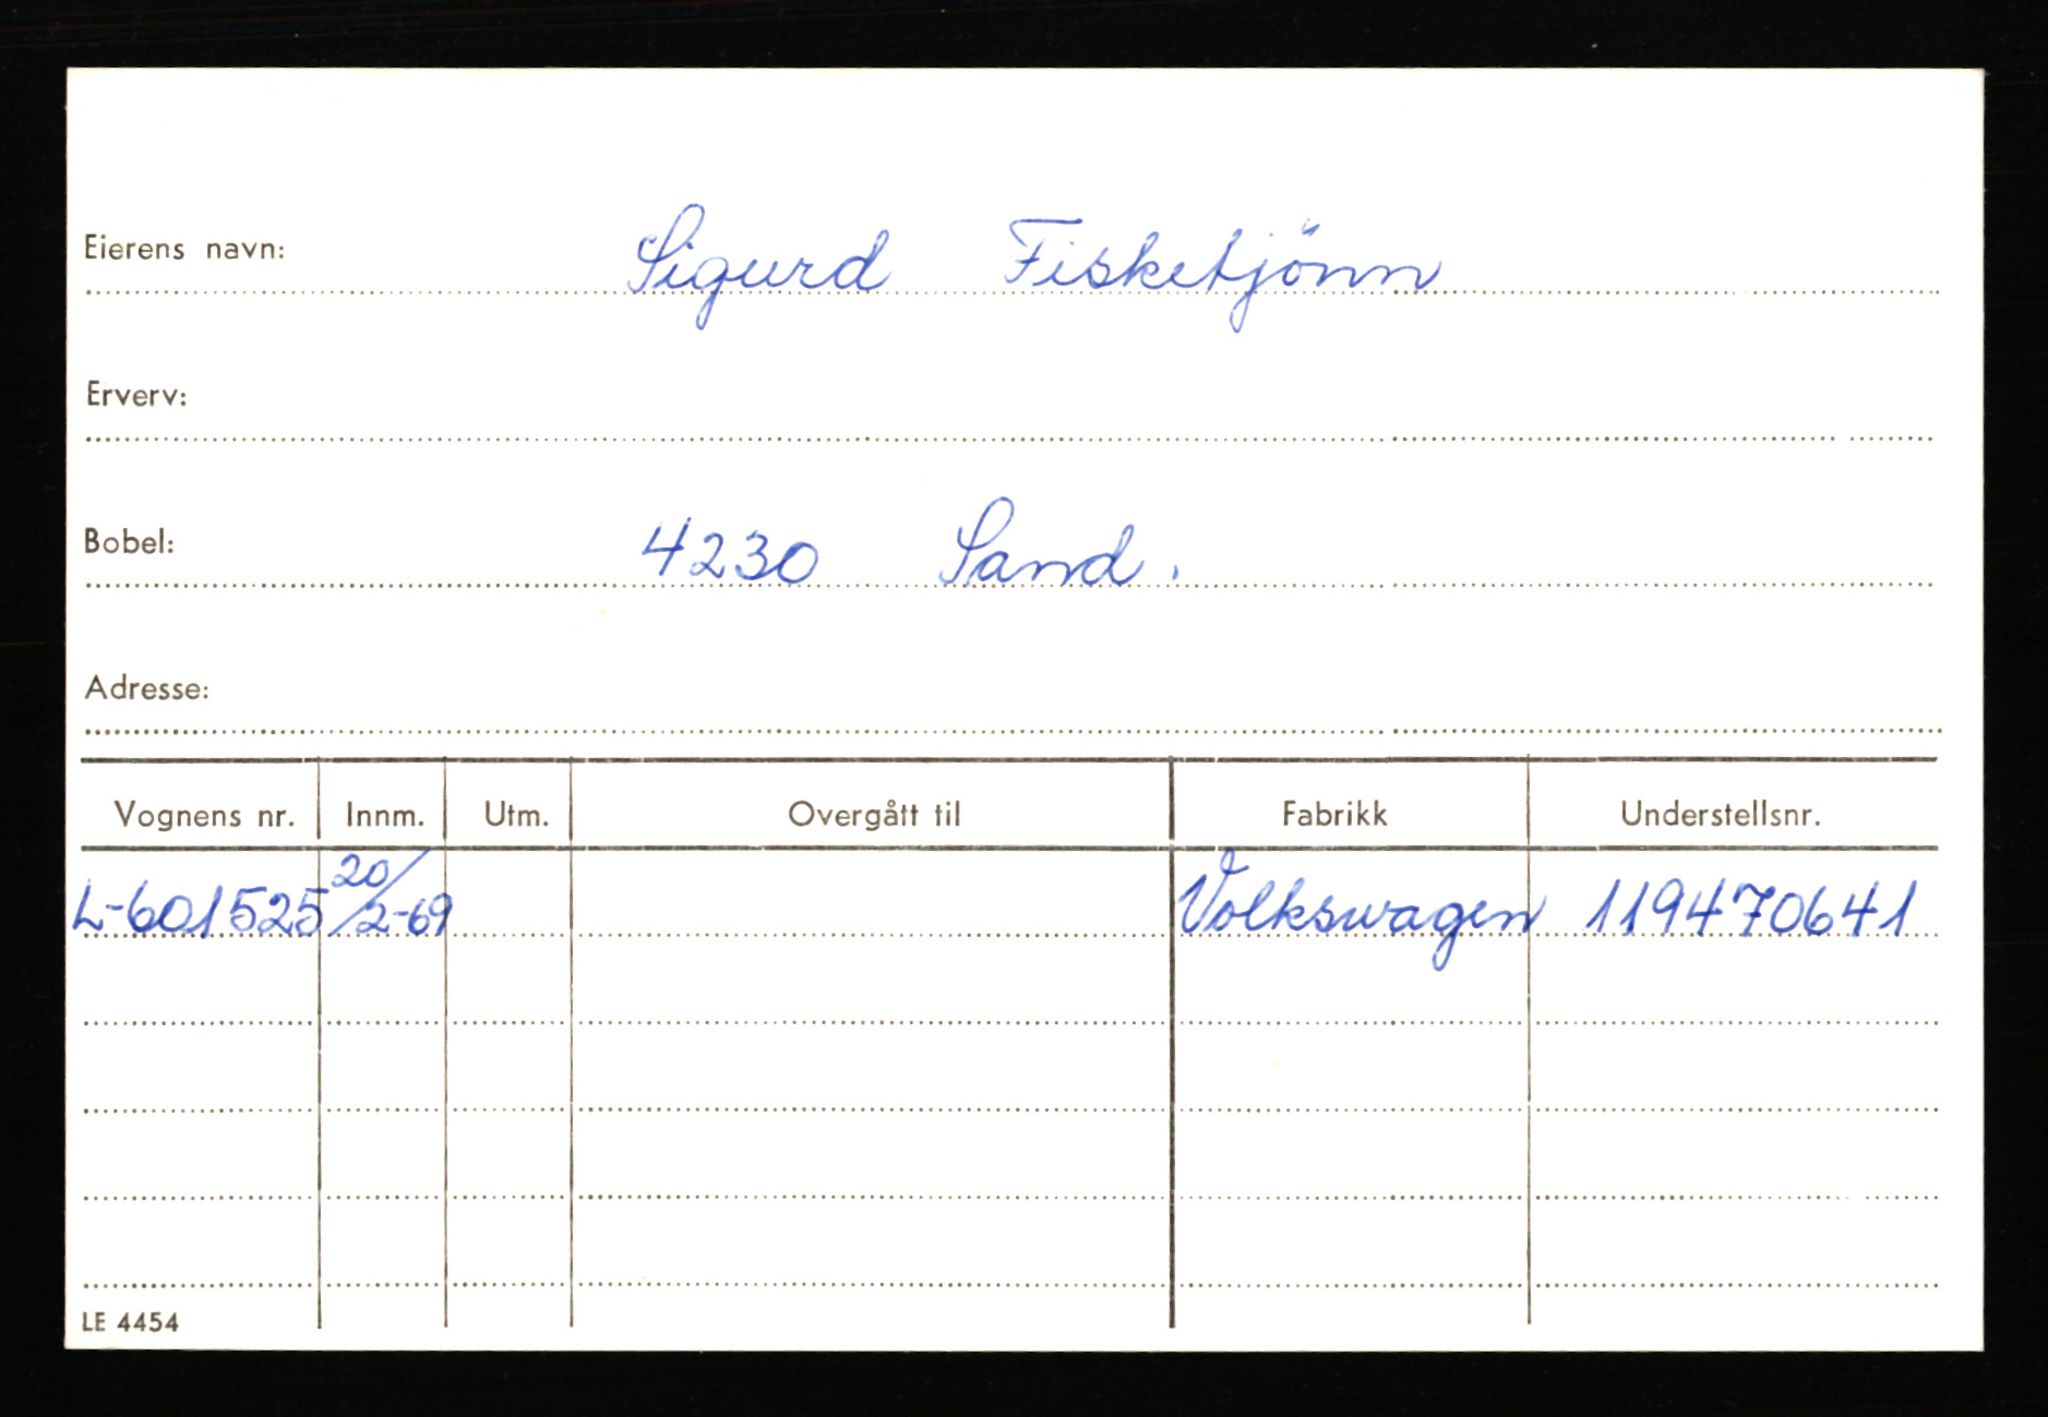 Eierens navn: Sigurd Fisketjönn
Erverv:
Bobel: 4230 Sand.
Adresse:
Vognens nr. Innm. Utm. Overgått til Fabrikk Understellsnr.
L-601525 20/2-69 Volkswagen 119470641
LE 4454